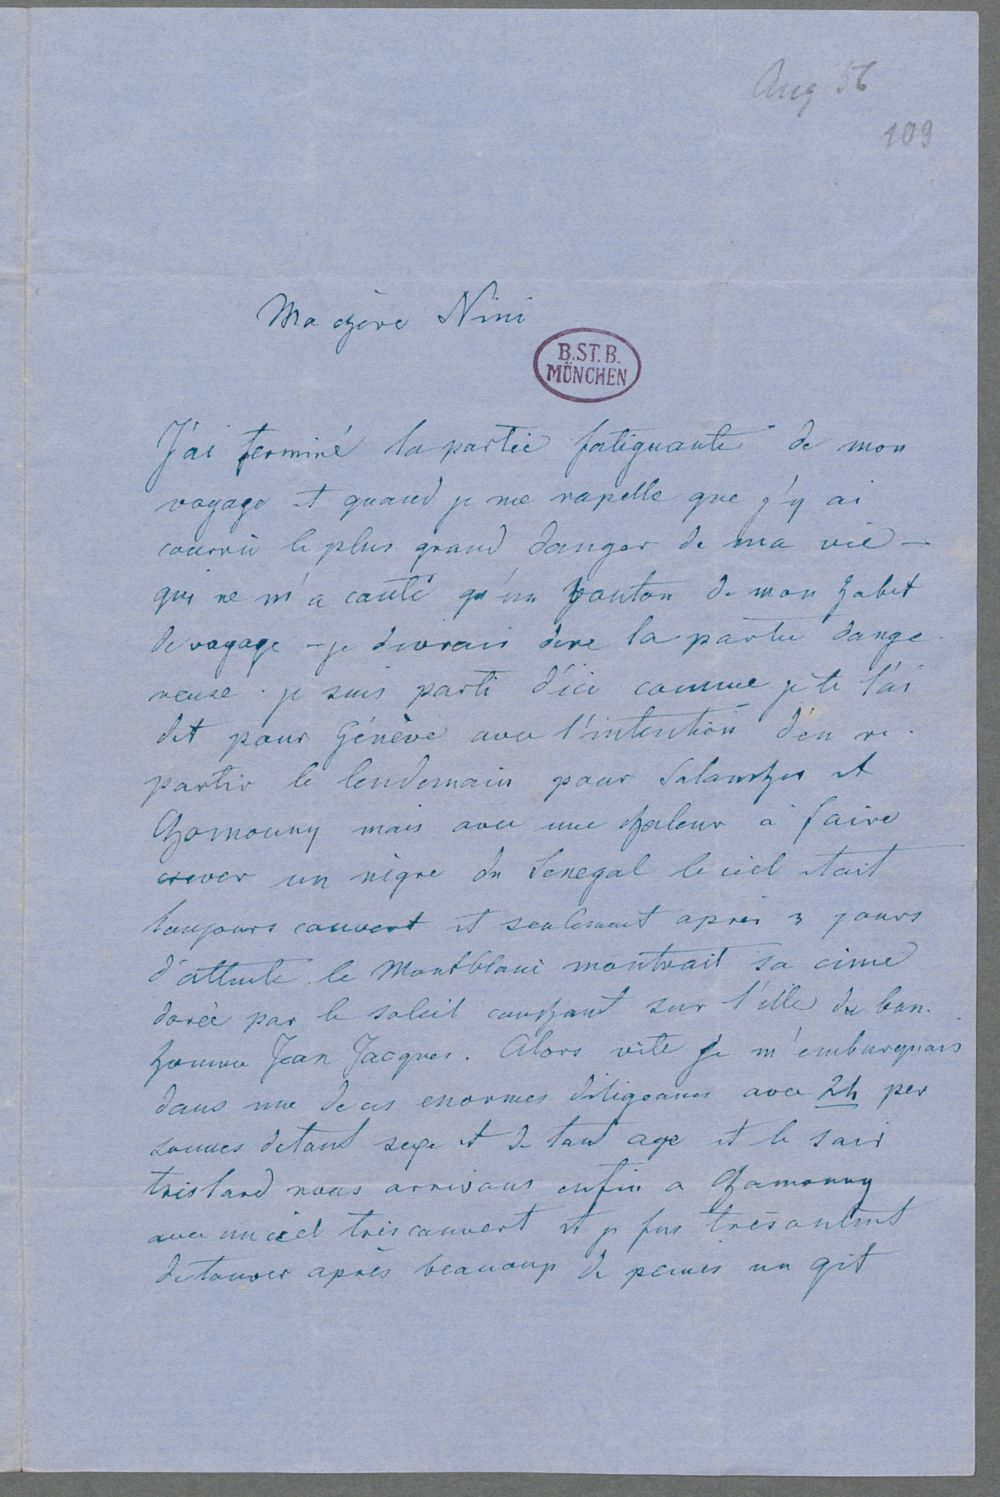 Aug 56
109
Ma chère Nini
B.ST.B.
MÜNCHEN
J'ai terminé la partie fatiguante de mon
voyage et quand je me rapelle que j'y ai
courru le plus grand danger de ma vie –
qui ne m'a couté qu'un bouton de mon habit
de voyage – je devrais dire la partie dange
reuse. je suis parti d'ici comme je te l'ai
dit pour Génève avec l'intention d'en re-
partir le lendemain pour Salanches et
Chamouny mais avec une chaleur à faire
crever un nègre du Senegal le ciel était
toujours couvert et seulement après 3 jours
d'attente le Montblanc montrait sa cime
dorée par le soleil couchant sur l'ille du bon-
homme Jean Jacques. Alors vite je m'embarquais
dans une de ces enormes diligeances avec 24 per
sonnes de tout sexe et de tout age et le soir
tres tard nous arrivons enfin a Chamouny
avec un ciel tres couvert et je fus tres content
de touver après beaucoup de peines un git